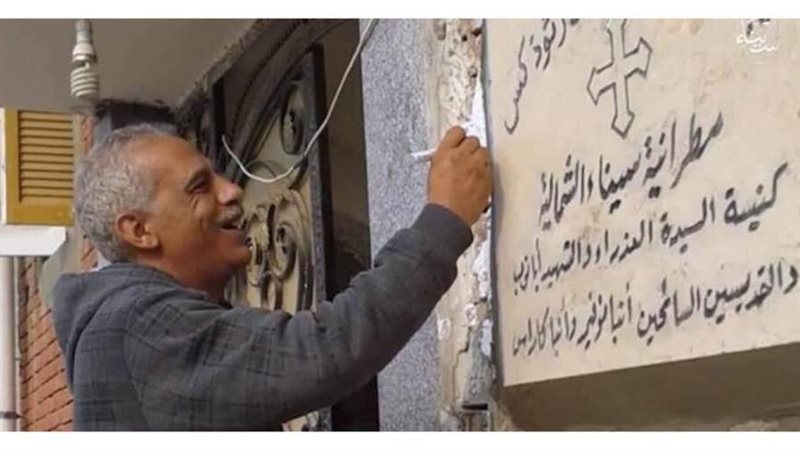 مطرانية سيناء الشمالية
كنيسة السيدة العذراء والشهيد أبانوب
والقديسين السائحين أنبا نوفير وأنبا كاراس